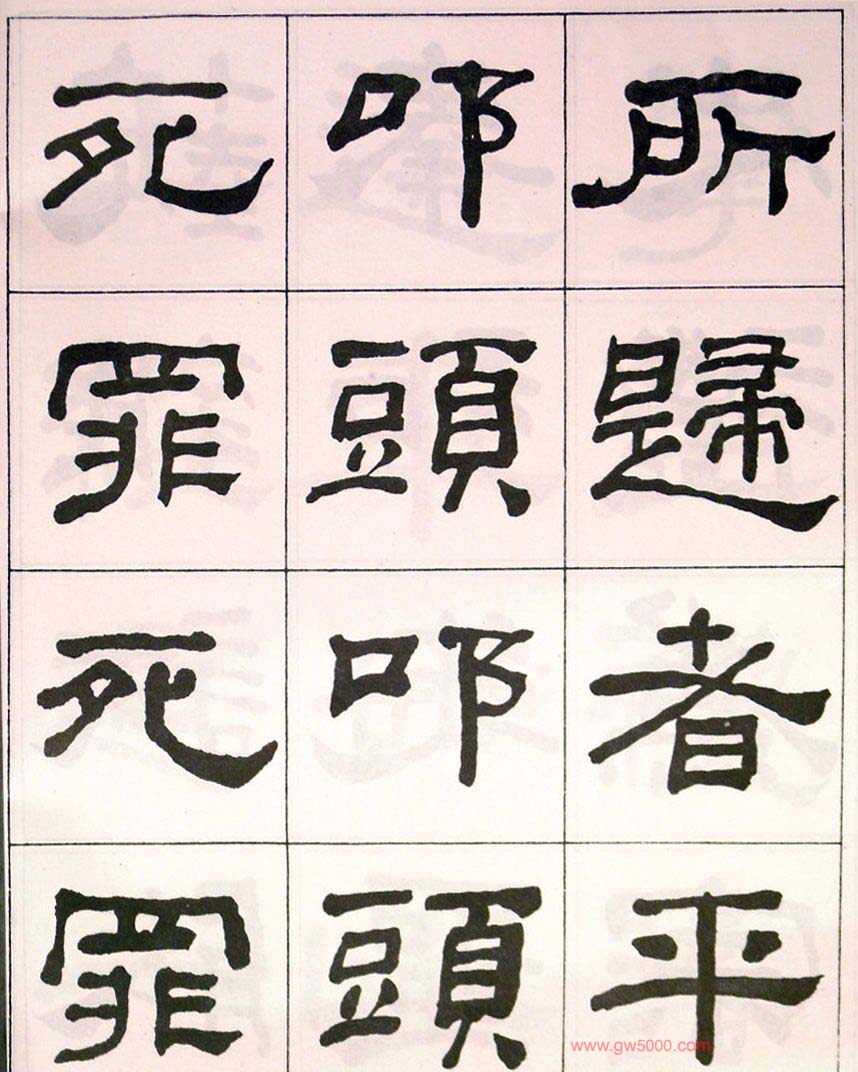 所歸者平
叩頭叩頭
死罪死罪
www.gw5000.com